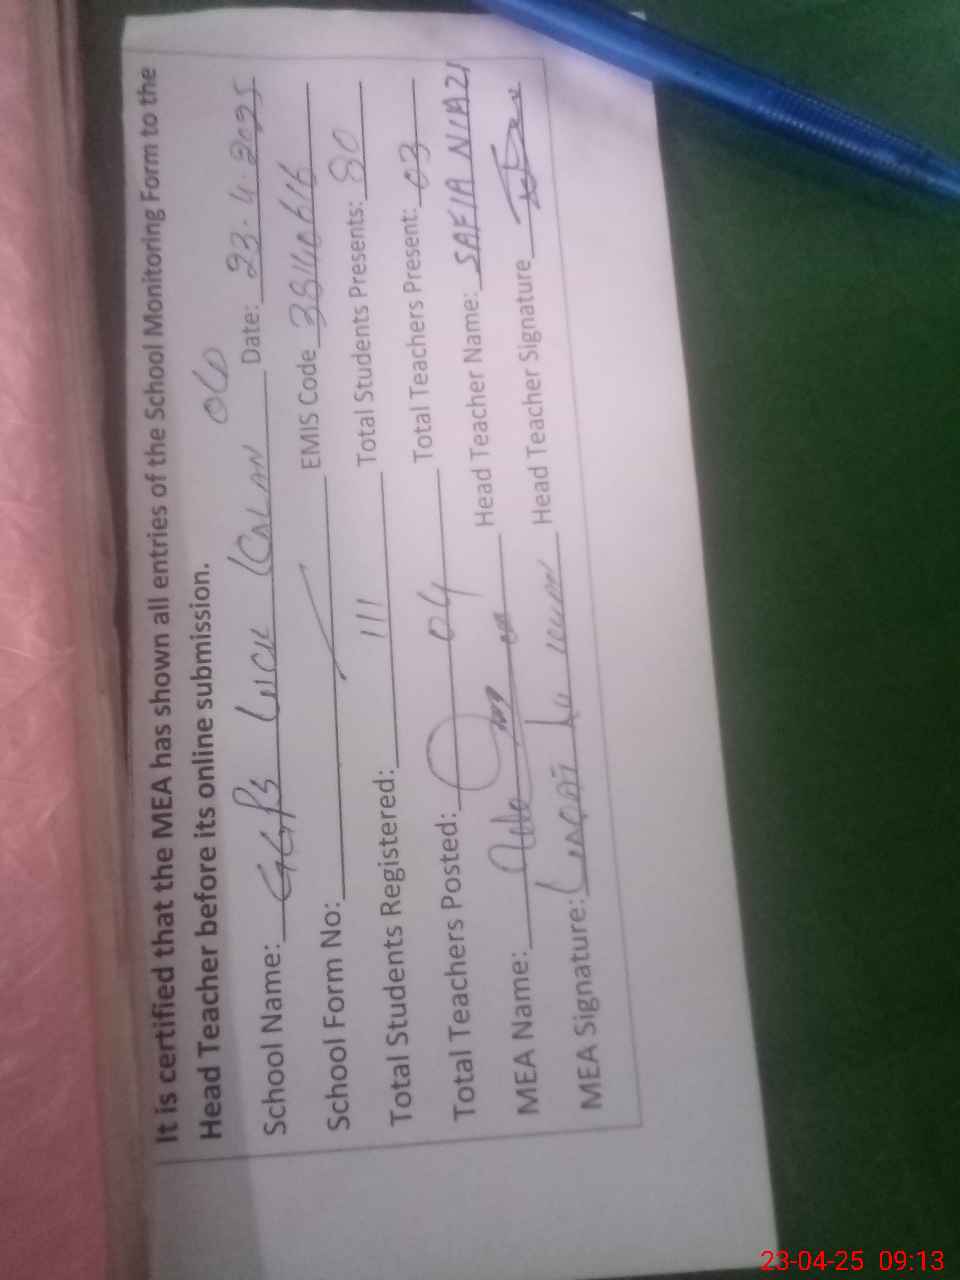 It is certified that the MEA has shown all entries of the School Monitoring Form to the
Head Teacher before its online submission. 06
School Name: GGPS KALAN Date: 23.4.2025
School Form No: EMIS Code 38140616
Total Students Registered: 111 Total Students Presents: 80
Total Teachers Posted: 04 Total Teachers Present: 03
MEA Name: Head Teacher Name: SAFIA NIAZI
MEA Signature: Head Teacher Signature
23-04-25 09:13